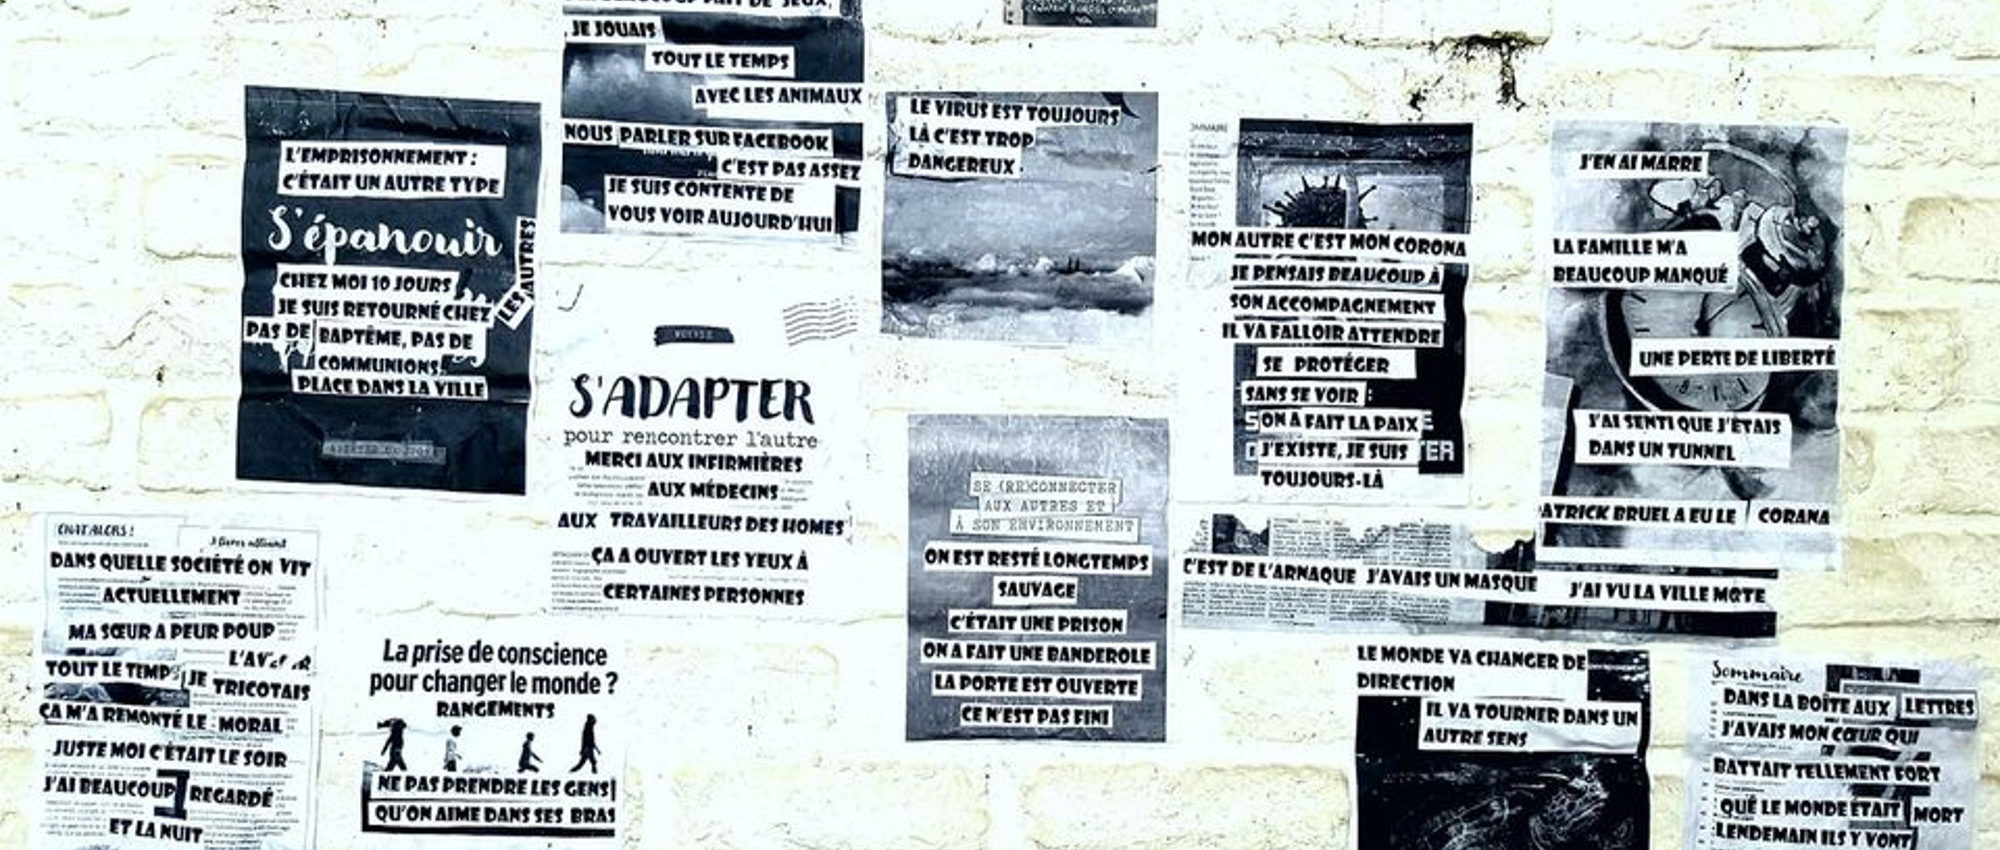 L'EMPRISONNEMENT :
C'ÉTAIT UN AUTRE TYPE
S'épanouir
LES AUTRES
CHEZ MOI 10 JOURS
JE SUIS RETOURNÉ CHEZ
PAS DE BAPTÊME, PAS DE
COMMUNIONS.
PLACE DANS LA VILLE
JEUX,
, JE JOUAIS
TOUT LE TEMPS
AVEC LES ANIMAUX
NOUS PARLER SUR FACEBOOK
C'EST PAS ASSEZ
JE SUIS CONTENTE DE
VOUS VOIR AUJOURD'HUI
LE VIRUS EST TOUJOURS
LÀ C'EST TROP
DANGEREUX.
MON AUTRE C'EST MON CORONA
JE PENSAIS BEAUCOUP À
SON ACCOMPAGNEMENT
IL VA FALLOIR ATTENDRE
SE PROTÉGER
SANS SE VOIR :
ON A FAIT LA PAIX
J'EXISTE, JE SUIS
TOUJOURS-LÀ
J'EN AI MARRE
LA FAMILLE M'A
BEAUCOUP MANQUÉ
UNE PERTE DE LIBERTÉ
J'AI SENTI QUE J'ÉTAIS
DANS UN TUNNEL
ATRICK BRUEL A EU LE CORANA
S'ADAPTER
pour rencontrer l'autre
MERCI AUX INFIRMIÈRES
AUX MÉDECINS
AUX TRAVAILLEURS DES HOMES
ÇA A OUVERT LES YEUX À
CERTAINES PERSONNES
SE (RE)CONNECTER
AUX AUTRES ET
À SON ENVIRONNEMENT
ON EST RESTÉ LONGTEMPS
SAUVAGE
C'ÉTAIT UNE PRISON
ON A FAIT UNE BANDEROLE
LA PORTE EST OUVERTE
CE N'EST PAS FINI
C'EST DE L'ARNAQUE J'AVAIS UN MASQUE
J'AI VU LA VILLE MORTE
DANS QUELLE SOCIÉTÉ ON VIT
ACTUELLEMENT
MA SŒUR A PEUR POUR
TOUT LE TEMPS JE TRICOTAIS
ÇA M'A REMONTÉ LE MORAL
JUSTE MOI C'ÉTAIT LE SOIR
J'AI BEAUCOUP REGARDÉ
ET LA NUIT
La prise de conscience
pour changer le monde ?
RANGEMENTS
NE PAS PRENDRE LES GENS
QU'ON AIME DANS SES BRAS
LE MONDE VA CHANGER DE
DIRECTION
IL VA TOURNER DANS UN
AUTRE SENS
Sommaire
DANS LA BOÎTE AUX LETTRES
J'AVAIS MON CŒUR QUI
BATTAIT TELLEMENT FORT
QUE LE MONDE ÉTAIT MORT
LENDEMAIN ILS Y VONT